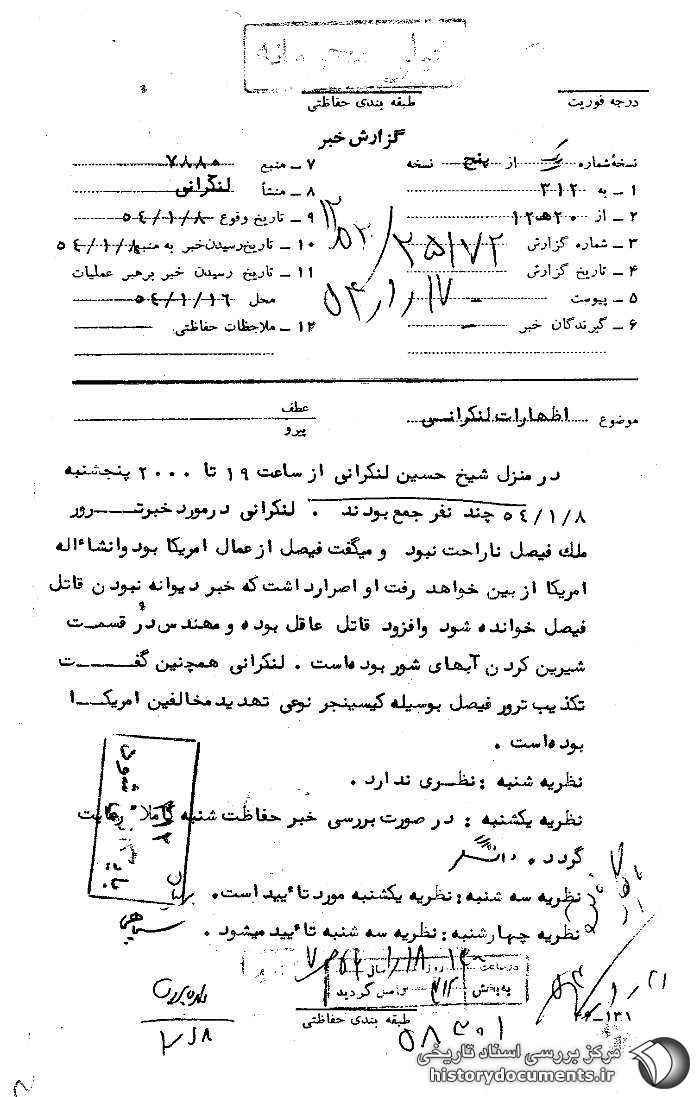 خیلی محرمانه
درجه فوریت
طبقه بندی حفاظتی
گزارش خبر
نسخهٔ شماره یک از پنج نسخه
۱ ـ به ۳۱۲
۲ ـ از ۲۰ﻫ۱۲
۳ ـ شماره گزارش ۲۵۱۷۲/
۴ ـ تاریخ گزارش ۵۴/۱/۱۷
۵ ـ پیوست ـ
۶ ـ گیرندگان خبر ـ
۷ ـ منبع ۷۸۸۰
۸ ـ منشأ لنکرانی
۹ ـ تاریخ وقوع ۵۴/۱/۸
۱۰ ـ تاریخ رسیدن خبر به منبع ۵۴/۱/۸
۱۱ ـ تاریخ رسیدن خبر برهبر عملیات
محل ۵۴/۱/۱۶
۱۲ ـ ملاحظات حفاظتی
موضوع اظهارات لنکرانی
عطف
پیرو
در منزل شیخ حسین لنکرانی از ساعت ۱۹ تا ۲۰۰۰ پنجشنبه
۵۴/۱/۸ چند نفر جمع بودند . لنکرانی در مورد خبر ترور
ملك فیصل ناراحت نبود و میگفت فیصل از عمال امریکا بود وانشاءاله
امریکا از بین خواهد رفت او اصرار داشت که خبر دیوانه نبودن قاتل
فیصل خوانده شود وافزود قاتل عاقل بوده و مهندس در قسمت
شیرین کردن آبهای شور بوده‌است . لنکرانی همچنین گفت
تکذیب ترور فیصل بوسیله کیسینجر نوعی تهدید مخالفین امریکا
بوده‌است .
نظریه شنبه : نظری ندارد .
نظریه یکشنبه : در صورت بررسی خبر حفاظت شنبه کاملا رعایت
گردد . دانشگر
نظریه سه شنبه : نظریه یکشنبه مورد تائید است .
نظریه چهارشنبه : نظریه سه شنبه تائید میشود .
در ساعت روز سال
به بخش ۳۱۲ واصل گردید
طبقه بندی حفاظتی
۵۴/۱/۲۱
۲۱۸
۵۸۳۰۱
مرکز بررسی اسناد تاریخی
historydocuments.ir